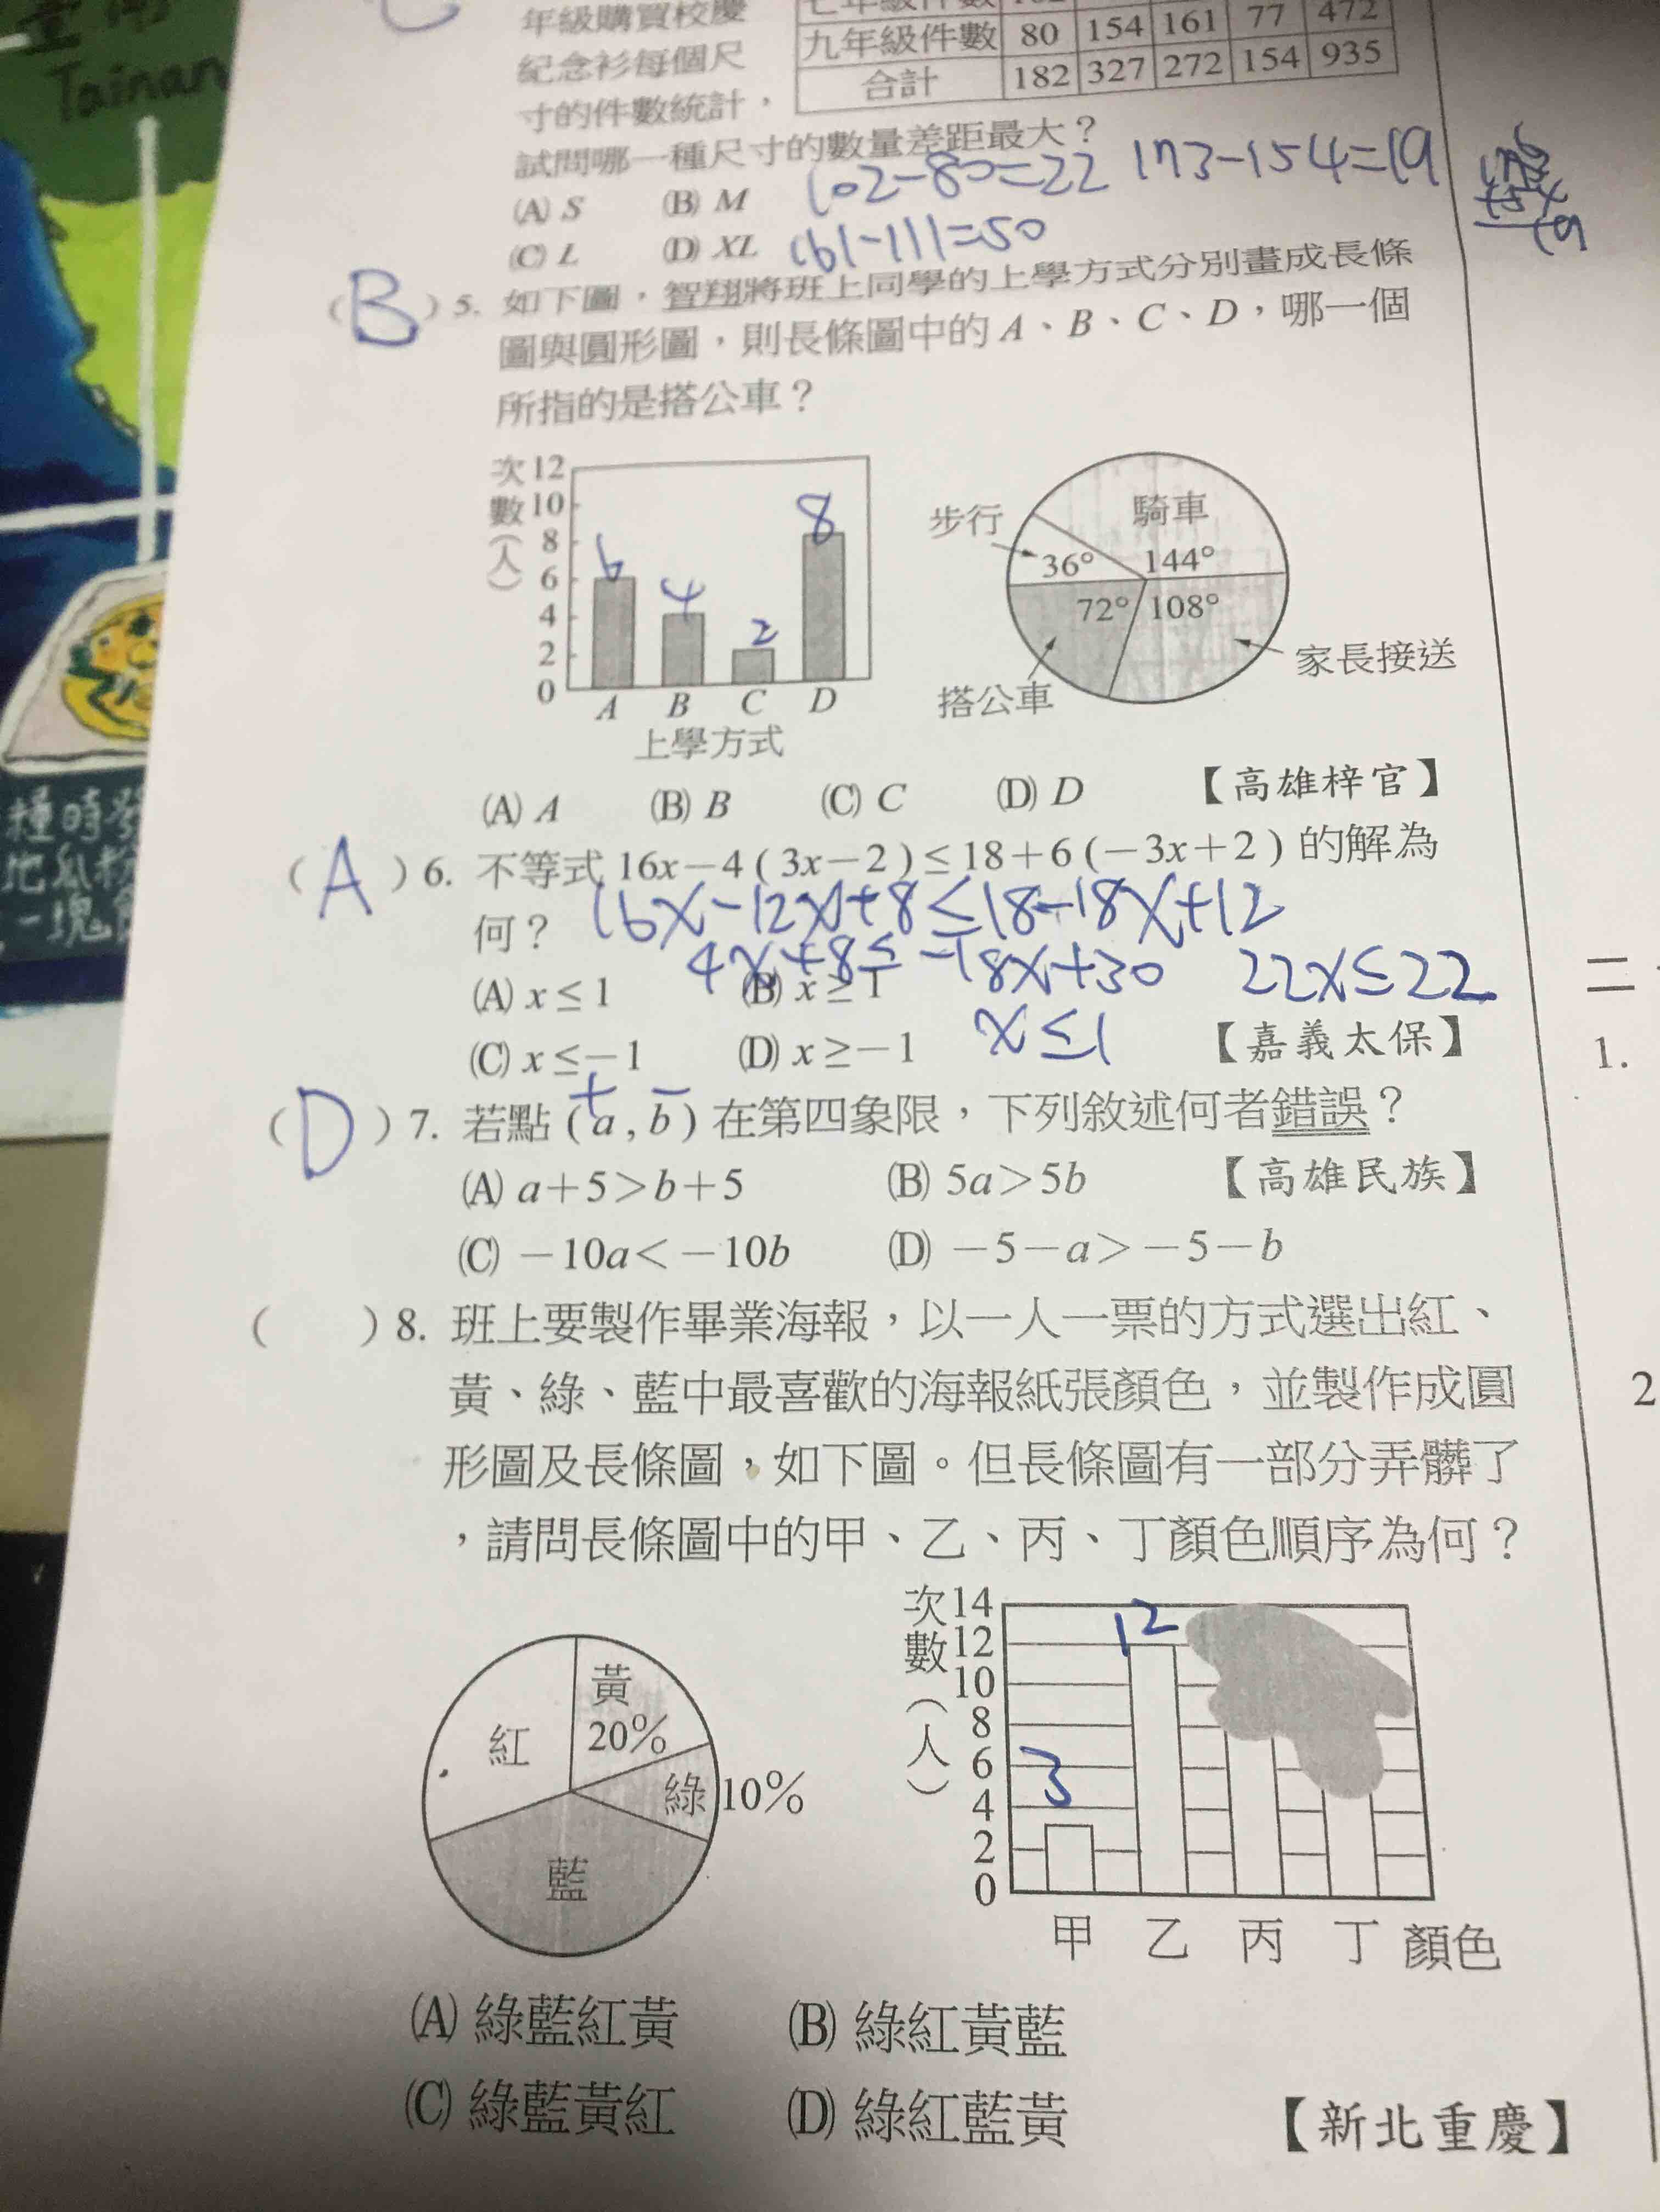 Tainan
年級購買校慶
紀念衫每個尺
寸的件數統計，
九年級件數 80 154 161 77 472
合計 182 327 272 154 935
試問哪一種尺寸的數量差距最大？
102-80=22 173-154=19
(A) S (B) M
(C) L (D) XL
161-111=50
( B ) 5. 如下圖，智翔將班上同學的上學方式分別畫成長條
圖與圓形圖，則長條圖中的 A、B、C、D，哪一個
所指的是搭公車？
次數（人）
12
10
8
6
4
2
0
6 4 2 8
A B C D
上學方式
步行 36°
騎車 144°
72° 108°
搭公車
家長接送
(A) A (B) B (C) C (D) D 【高雄梓官】
( A ) 6. 不等式 16x－4 ( 3x－2 ) ≤ 18＋6 (－3x＋2 ) 的解為
何？
16x-12x+8≤18-18x+12
4x+8≤-18x+30 22x≤22
(A) x ≤ 1 (B) x ≥ 1
x≤1
(C) x ≤－1 (D) x ≥－1 【嘉義太保】
+ −
( D ) 7. 若點 ( a , b ) 在第四象限，下列敘述何者錯誤？
(A) a＋5＞b＋5 (B) 5a＞5b 【高雄民族】
(C) －10a＜－10b (D) －5－a＞－5－b
( ) 8. 班上要製作畢業海報，以一人一票的方式選出紅、
黃、綠、藍中最喜歡的海報紙張顏色，並製作成圓
形圖及長條圖，如下圖。但長條圖有一部分弄髒了
，請問長條圖中的甲、乙、丙、丁顏色順序為何？
黃
20%
紅
綠 10%
藍
次數（人）
14
12
10
8
6
4
2
0
3 12
甲 乙 丙 丁 顏色
(A) 綠藍紅黃 (B) 綠紅黃藍
(C) 綠藍黃紅 (D) 綠紅藍黃
【新北重慶】
二
1.
2